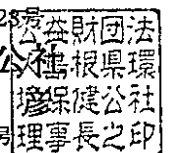 号
公益財団法
公社
人島根県環
境保健公社
号
理事長之印